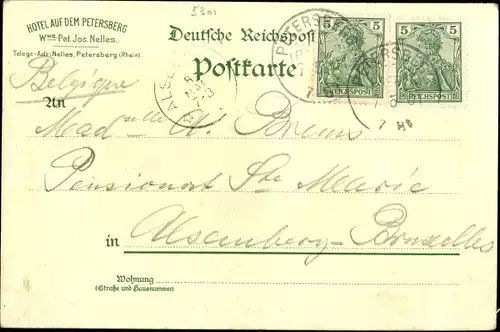 HOTEL AUF DEM PETERSBERG
Wwe Pet. Jos. Nelles.
Telegr-Adr: Nelles, Petersberg (Rhein).
Deutsche Reichspost
Postkarte
5
5
REICHSPOST
5
5
REICHSPOST
PETERSBERG
ALSEMBERG
Belgique
An
Mademlle A.
Pensionat Ste Marie
in Alsemberg-Bruxelles
Wohnung
(Straße und Hausnummer)